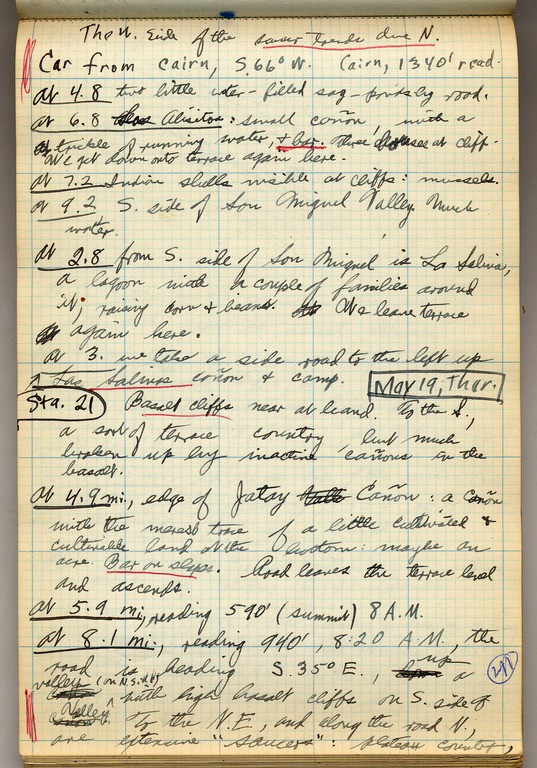 The N. side of the saucer trends due N.
Car from cairn, S. 66° W. Cairn, 1340' read.
At 4.8 two little water-filled sag-ponds by road.
At 6.8 Alisitos: small cañon, with a
trickle of running water, & bar. Three houses at cliff.
We get down onto terrace again here.
At 7.2 Indian shells visible at cliffs: mussels.
At 9.2, S. side of San Miguel Valley. Much
water.
At 2.8 from S. side of San Miguel is La Salina,
a lagoon with a couple of families around
it, raising corn & beans. We leave terrace
again here.
At 3. we take a side road to the left up
Las Salinas cañon & camp. May 19, Thur.
Sta. 21 Basalt cliffs near at hand. To the S.,
a sort of terrace country, but much
broken up by inactive cañons in the
basalt.
At 4.9 mi., edge of Jatay Cañon: a cañon
with the merest trace of a little cultivated &
cultivable land at the bottom: maybe an
acre. Bar on slope. Road leaves the terrace level
and ascends.
At 5.9 mi, reading 590' (summit) 8 A.M.
At 8.1 mi., reading 940', 8:20 A.M., the
road is heading S. 35° E., up a
valley (on N.S.)
Valley, with high basalt cliffs on S. side of
To the N.E., and along the road N.,
are extensive "saucers": plateau country,